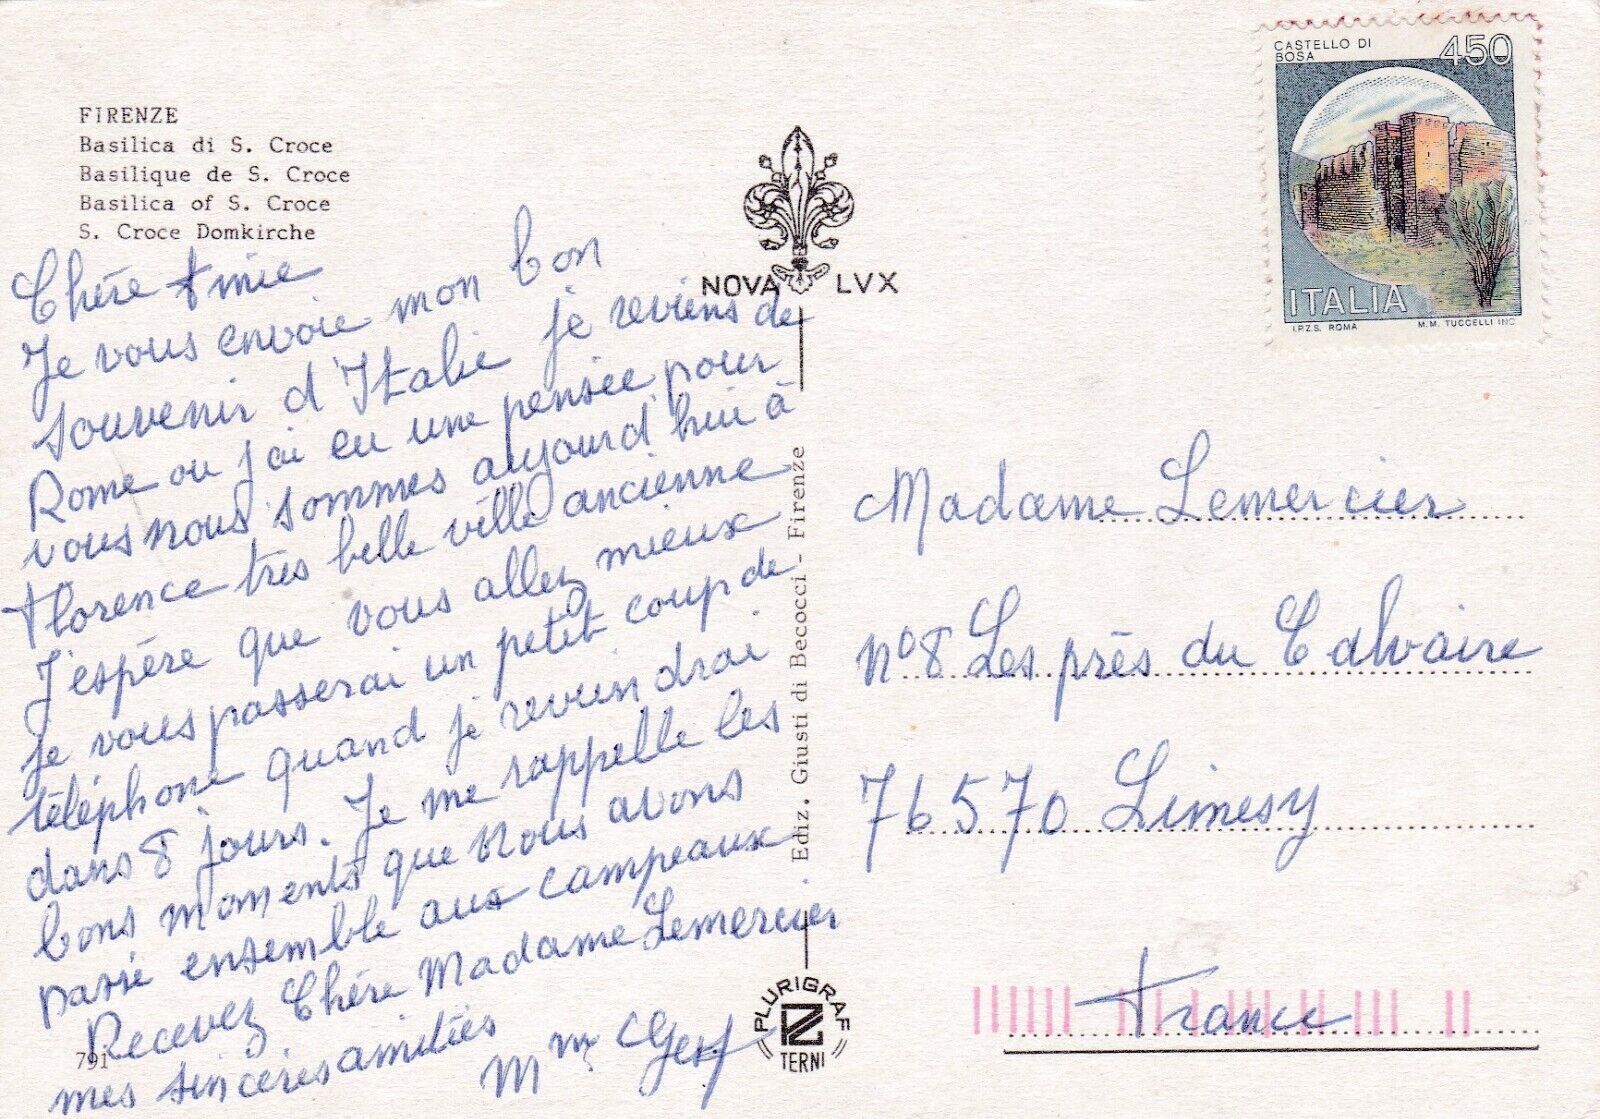 FIRENZE
Basilica di S. Croce
Basilique de S. Croce
Basilica of S. Croce
S. Croce Domkirche
Chère Amie
Je vous envoie mon bon
souvenir d'Italie je reviens de
Rome ou j'ai eu une pensée pour
vous nous sommes aujourd'hui à
Florence très belle ville ancienne
J'espère que vous allez mieux
je vous passerai un petit coup de
téléphone quand je reviendrai
dans 8 jours. Je me rappelle les
bons moments que nous avons
passé ensemble aux campeaux
Recevez Chère Madame Lemercier
mes sincères amitiés
Mme
791
NOVA LVX
Ediz. Giusti di Becocci - Firenze
PLURIGRAF
TERNI
CASTELLO DI
BOSA
450
ITALIA
I.P.Z.S. ROMA M.M. TUCCELLI INC
Madame Lemercier
n°8 Les près du Calvaire
76570 Limesy
France